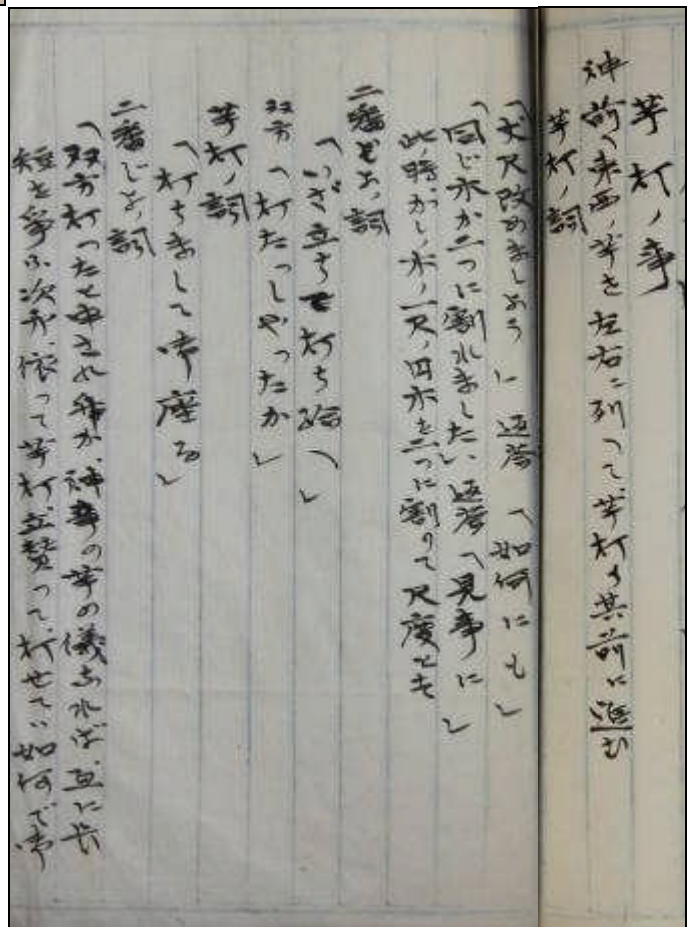 芋打ノ事
神前ヘ東西ノ芋を左右ニ列べて芋打り其前に進む
芋打ノ詞
「丈尺改めましよう」 返答 「如何にも」
「同じ木が二つに割れました」 返答 「見事に」
此ノ時、かしノ木ノ一尺ノ四木を二つに割りて尺度とす
二番じよノ詞
「いざ立ちて打ち給へ」
双方 「打たつしやつたか」
芋打ノ詞
「打ちまして御座る」
二番じよノ詞
「双方打つたと申され候が、神事の芋の儀なれば、互に長
短を争ふ次第、依つて芋打立替つて、打せてハ如何で御